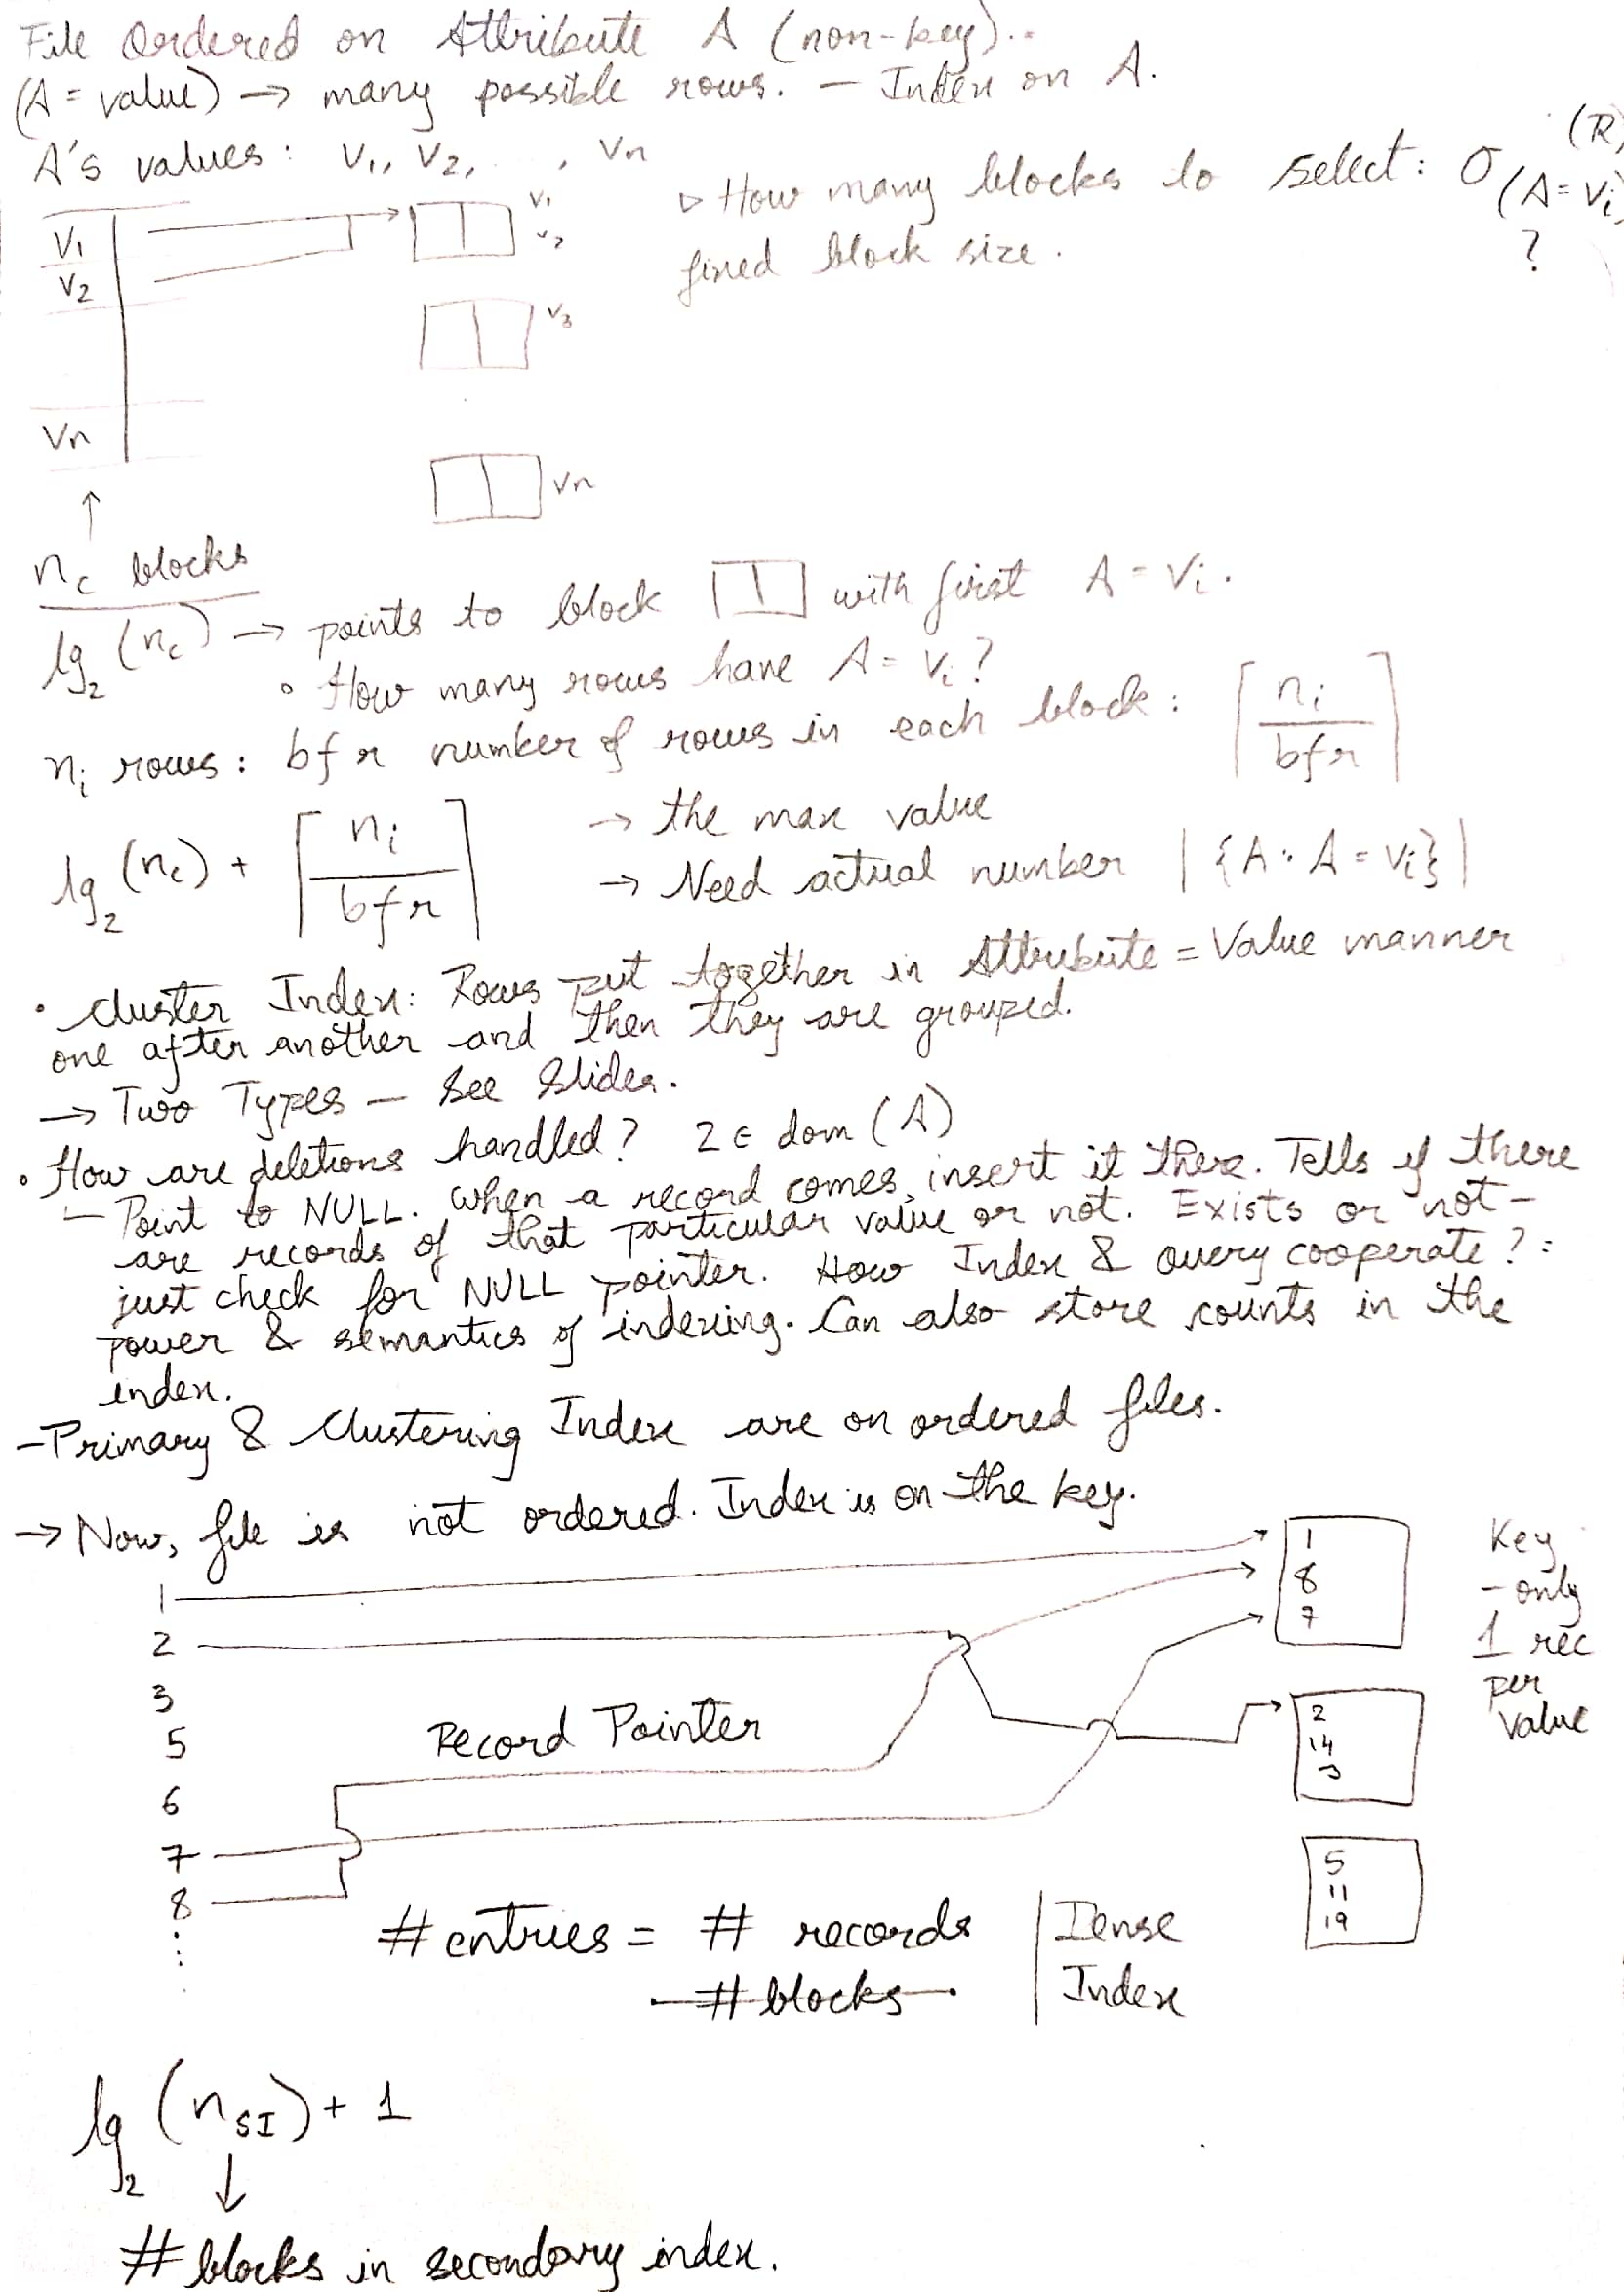 File Ordered on Attribute A (non-key)..
(A = value) → many possible rows. — Index on A.
A's values: V₁, V₂, . . , Vn
▷ How many blocks to select: σ (A=Vi) (R)
fixed block size. ?
V₁
V₂
Vn
V₁
V₂
V₃
Vn
↑
n_c blocks
lg₂ (n_c) → points to block with first A = Vi.
• How many rows have A = Vi?
ni rows: bfr number of rows in each block: ⌈ni / bfr⌉
lg₂ (n_c) + ⌈ni / bfr⌉ → the max value
→ Need actual number |{A : A = Vi}|
• Cluster Index: Rows put together in Attribute = Value manner
one after another and then they are grouped.
→ Two Types — See Slides.
• How are deletions handled? 2 ∈ dom (A)
— Point to NULL. When a record comes, insert it there. Tells if there
are records of that particular value or not. Exists or not -
just check for NULL pointer. How Index & query cooperate? :
power & semantics of indexing. Can also store counts in the
index.
- Primary & Clustering Index are on ordered files.
→ Now, file is not ordered. Index is on the key.
1
2
3
5
6
7
8
⋮
Record Pointer
1
8
7
2
14
3
5
11
19
Key
- only
1 rec
per
value
# entries = # records | Dense
# blocks | Index
lg₂ (n_SI) + 1
↓
# blocks in secondary index.